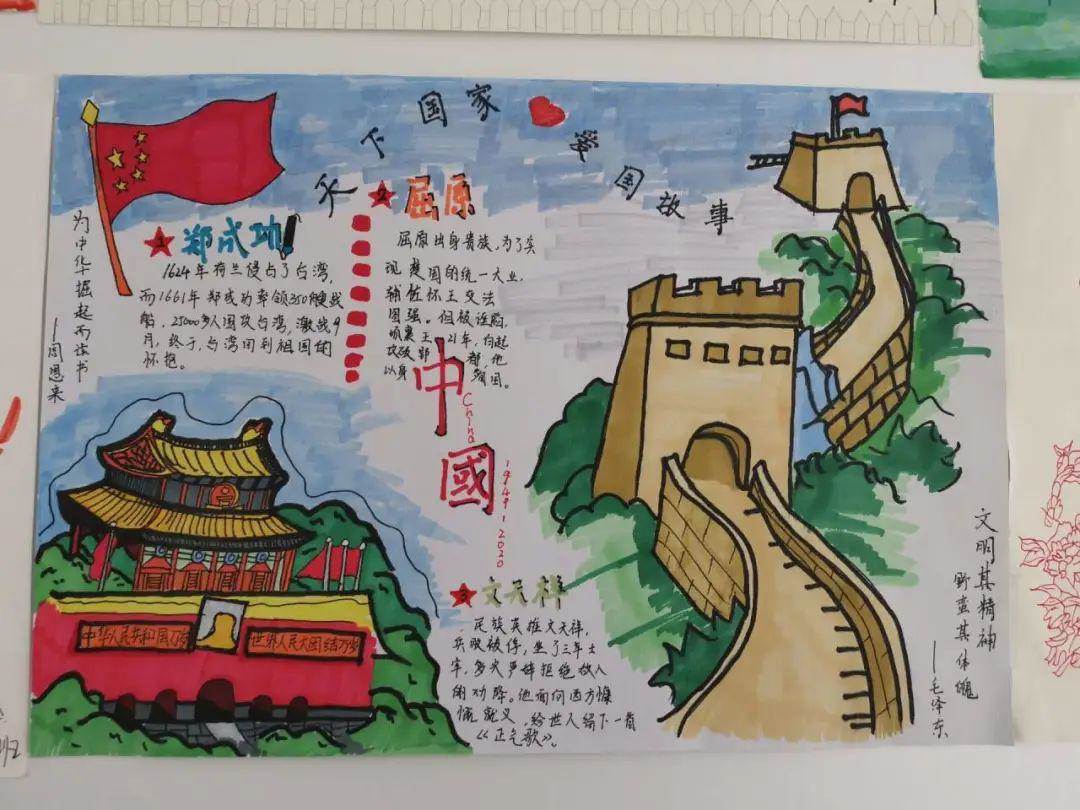 天下国家 爱国故事
为中华崛起而读书
——周恩来
1 郑成功
1624年荷兰侵占了台湾,
而1661年郑成功率领350艘战
船,25000多人围攻台湾,激战9
月,终于,台湾回到祖国的
怀抱。
2 屈原
屈原出身贵族,为了实
现楚国的统一大业,
辅佐怀王变法
图强。但被诬陷,
顷襄王21年,白起
攻破郢都,他
以身殉国。
中國
China
1949·2020
3 文天祥
民族英雄文天祥,
兵败被俘,坐了三年土
牢,多次严辞拒绝敌人
的劝降。他面向西方慷
慨就义,给世人留下一首
《正气歌》。
中华人民共和国万岁
世界人民大团结万岁
文明其精神
野蛮其体魄
——毛泽东